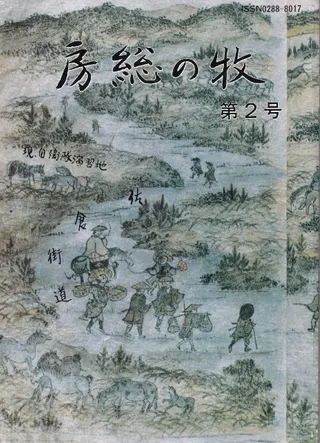 ISSN0288-8017
房総の牧
第2号
現、自衛隊演習地
佐倉街道